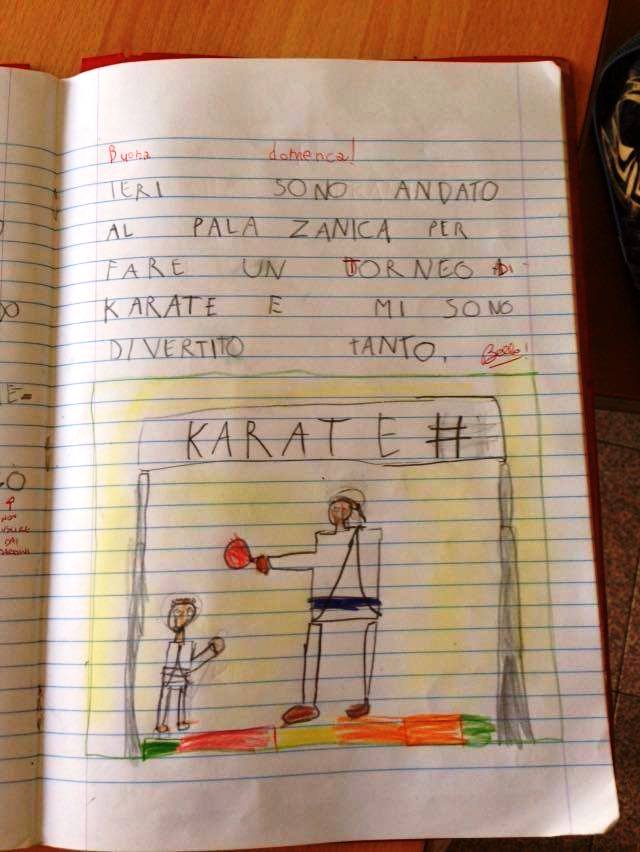 Buona domenca!
IERI SONO ANDATO
AL PALA ZANICA PER
FARE UN TORNEO DI
KARATE E MI SONO
DIVERTITO tANTO. Bello!
KARATE #